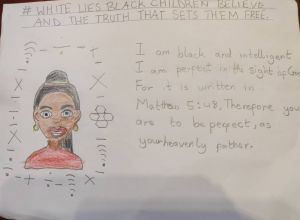 # WHITE LIES BLACK CHILDREN BELIEVE
AND THE TRUTH THAT SETS THEM FREE.
I am black and intelligent
I am perfect in the sight of God
For it is written in
Matthew 5:48, Therefore you
are to be perfect, as
your heavenly father.